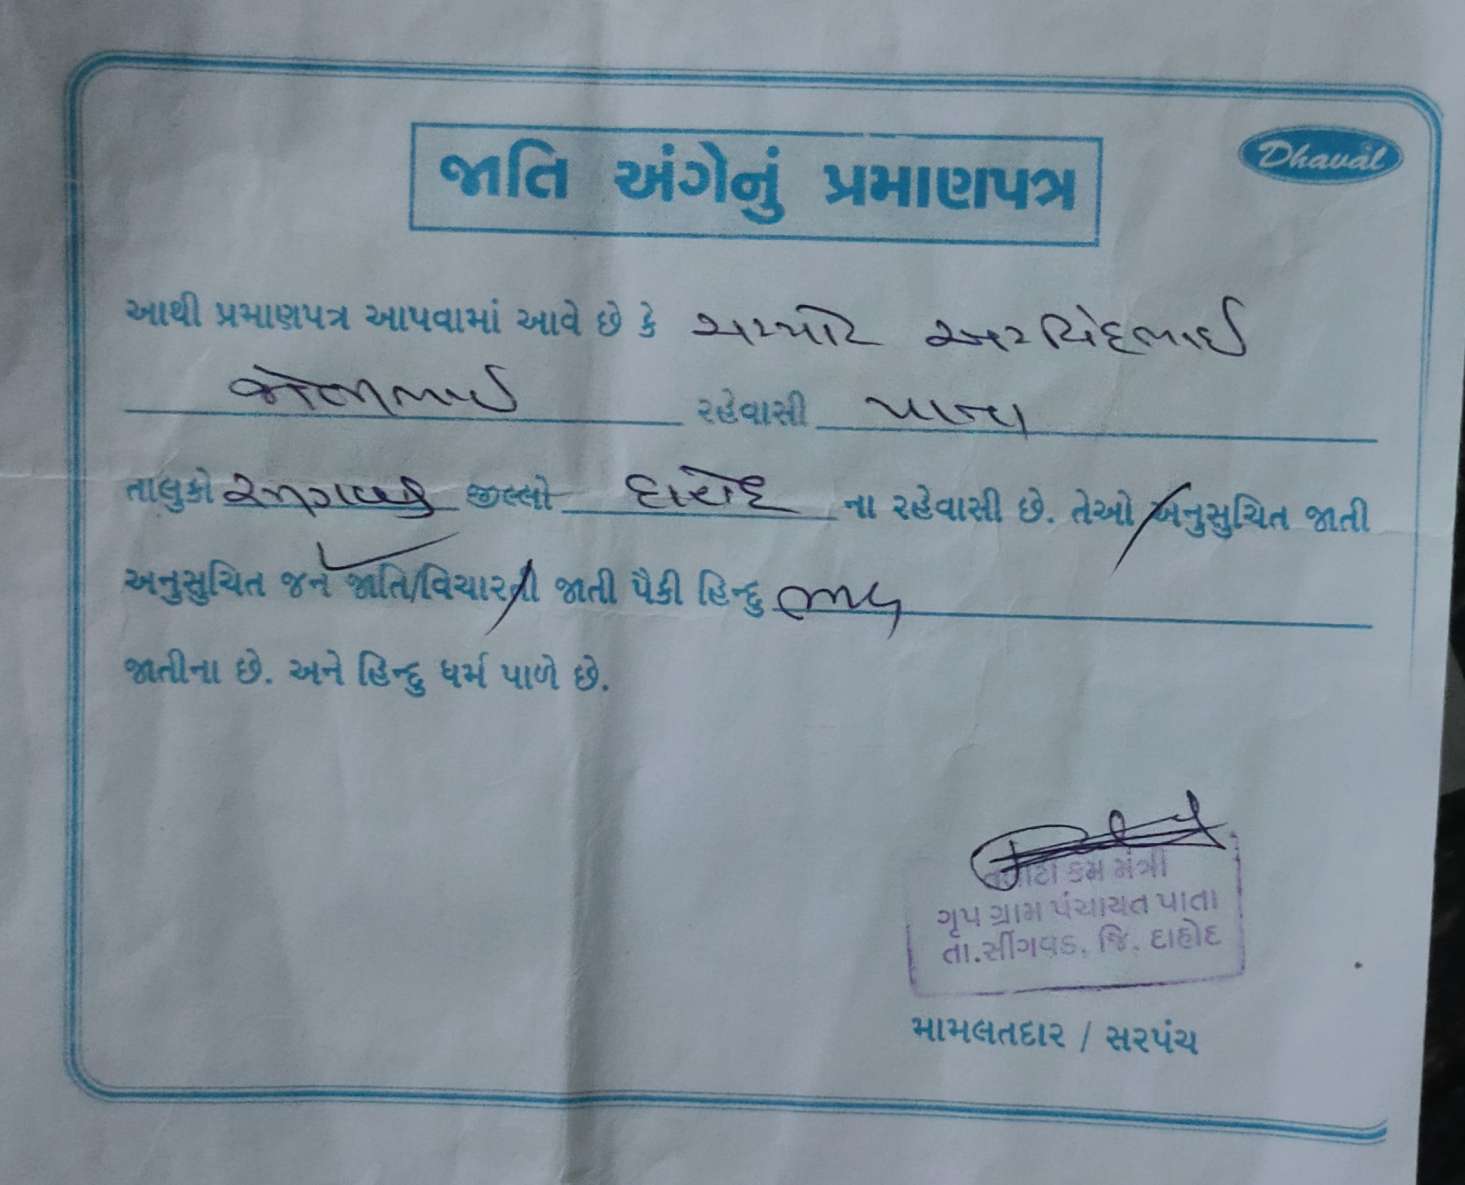 Dhaval
જાતિ અંગેનું પ્રમાણપત્ર
આથી પ્રમાણપત્ર આપવામાં આવે છે કે અરવિંદભાઈ
રહેવાસી પાતા
તાલુકો જીલ્લો દાહોદ ના રહેવાસી છે. તેઓ અનુસુચિત જાતી
અનુસુચિત જન જાતિ/વિચારતી જાતી પૈકી હિન્દુ
જાતીના છે. અને હિન્દુ ધર્મ પાળે છે.
તલાટી કમ મંત્રી
ગૃપ ગ્રામ પંચાયત પાતા
તા.સીંગવડ, જિ. દાહોદ
મામલતદાર / સરપંચ